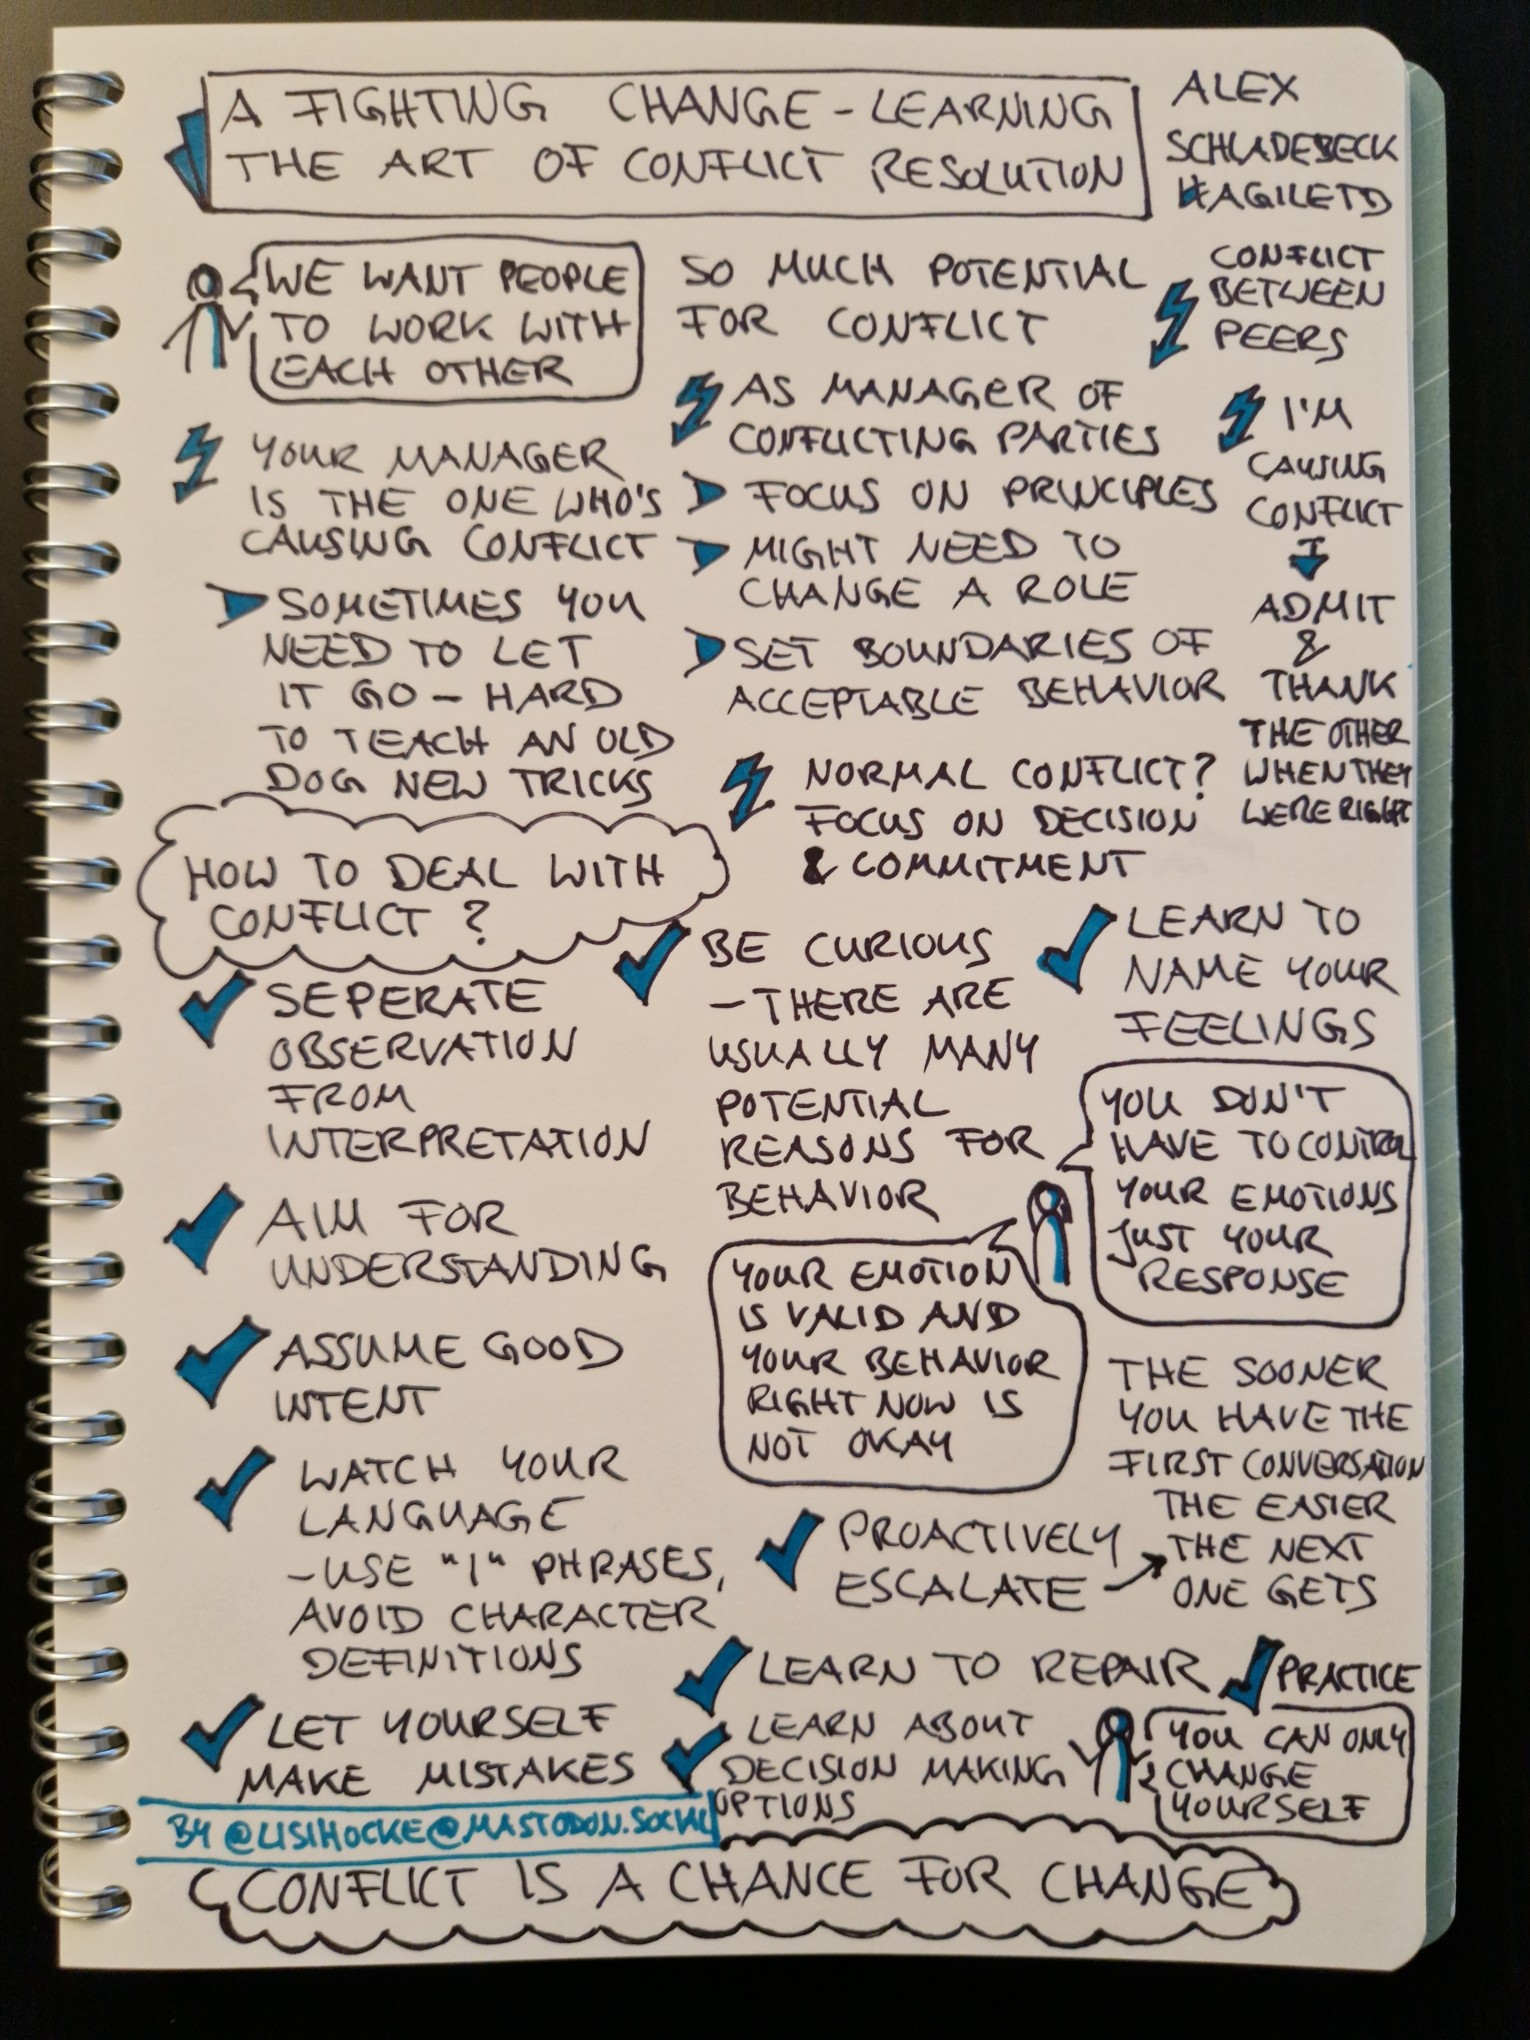 A FIGHTING CHANGE - LEARNING
THE ART OF CONFLICT RESOLUTION
ALEX
SCHLADEBECK
#AGILETD
WE WANT PEOPLE
TO WORK WITH
EACH OTHER
SO MUCH POTENTIAL
FOR CONFLICT
CONFLICT
BETWEEN
PEERS
YOUR MANAGER
IS THE ONE WHO'S
CAUSING CONFLICT
SOMETIMES YOU
NEED TO LET
IT GO - HARD
TO TEACH AN OLD
DOG NEW TRICKS
AS MANAGER OF
CONFLICTING PARTIES
FOCUS ON PRINCIPLES
MIGHT NEED TO
CHANGE A ROLE
SET BOUNDARIES OF
ACCEPTABLE BEHAVIOR
I'M
CAUSING
CONFLICT
ADMIT
&
THANK
THE OTHER
WHEN THEY
WERE RIGHT
NORMAL CONFLICT?
FOCUS ON DECISION
& COMMITMENT
HOW TO DEAL WITH
CONFLICT?
SEPERATE
OBSERVATION
FROM
INTERPRETATION
AIM FOR
UNDERSTANDING
ASSUME GOOD
INTENT
WATCH YOUR
LANGUAGE
- USE "I" PHRASES,
AVOID CHARACTER
DEFINITIONS
LET YOURSELF
MAKE MISTAKES
BE CURIOUS
- THERE ARE
USUALLY MANY
POTENTIAL
REASONS FOR
BEHAVIOR
YOUR EMOTION
IS VALID AND
YOUR BEHAVIOR
RIGHT NOW IS
NOT OKAY
LEARN TO
NAME YOUR
FEELINGS
YOU DON'T
HAVE TO CONTROL
YOUR EMOTIONS
JUST YOUR
RESPONSE
PROACTIVELY
ESCALATE
THE SOONER
YOU HAVE THE
FIRST CONVERSATION
THE EASIER
THE NEXT
ONE GETS
LEARN TO REPAIR
PRACTICE
LEARN ABOUT
DECISION MAKING
OPTIONS
YOU CAN ONLY
CHANGE
YOURSELF
BY @LISIHOCKE@MASTODON.SOCIAL
CONFLICT IS A CHANCE FOR CHANGE